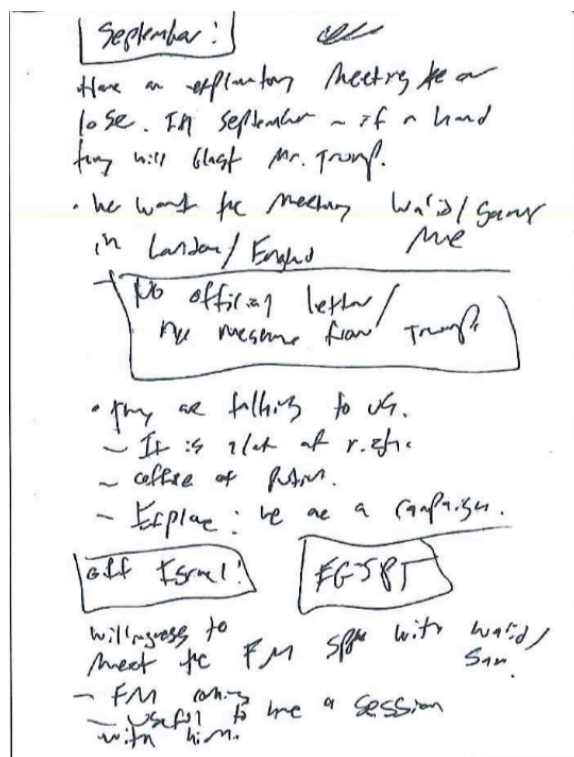 September:
Have an exploratory meeting to or
lose. In September – if a hand
they will blast Mr. Trump.
• We want the meeting Walid/Sam
me
in London/England
No official letter/
no message from Trump.
• they are talking to us.
– It is a lot of risk.
– office of Putin.
– Explore: we are a campaign.
off Israel! EGYPT
willingness to
meet the FM with Walid/
Sam.
– FM coming
– useful to have a session
with him.